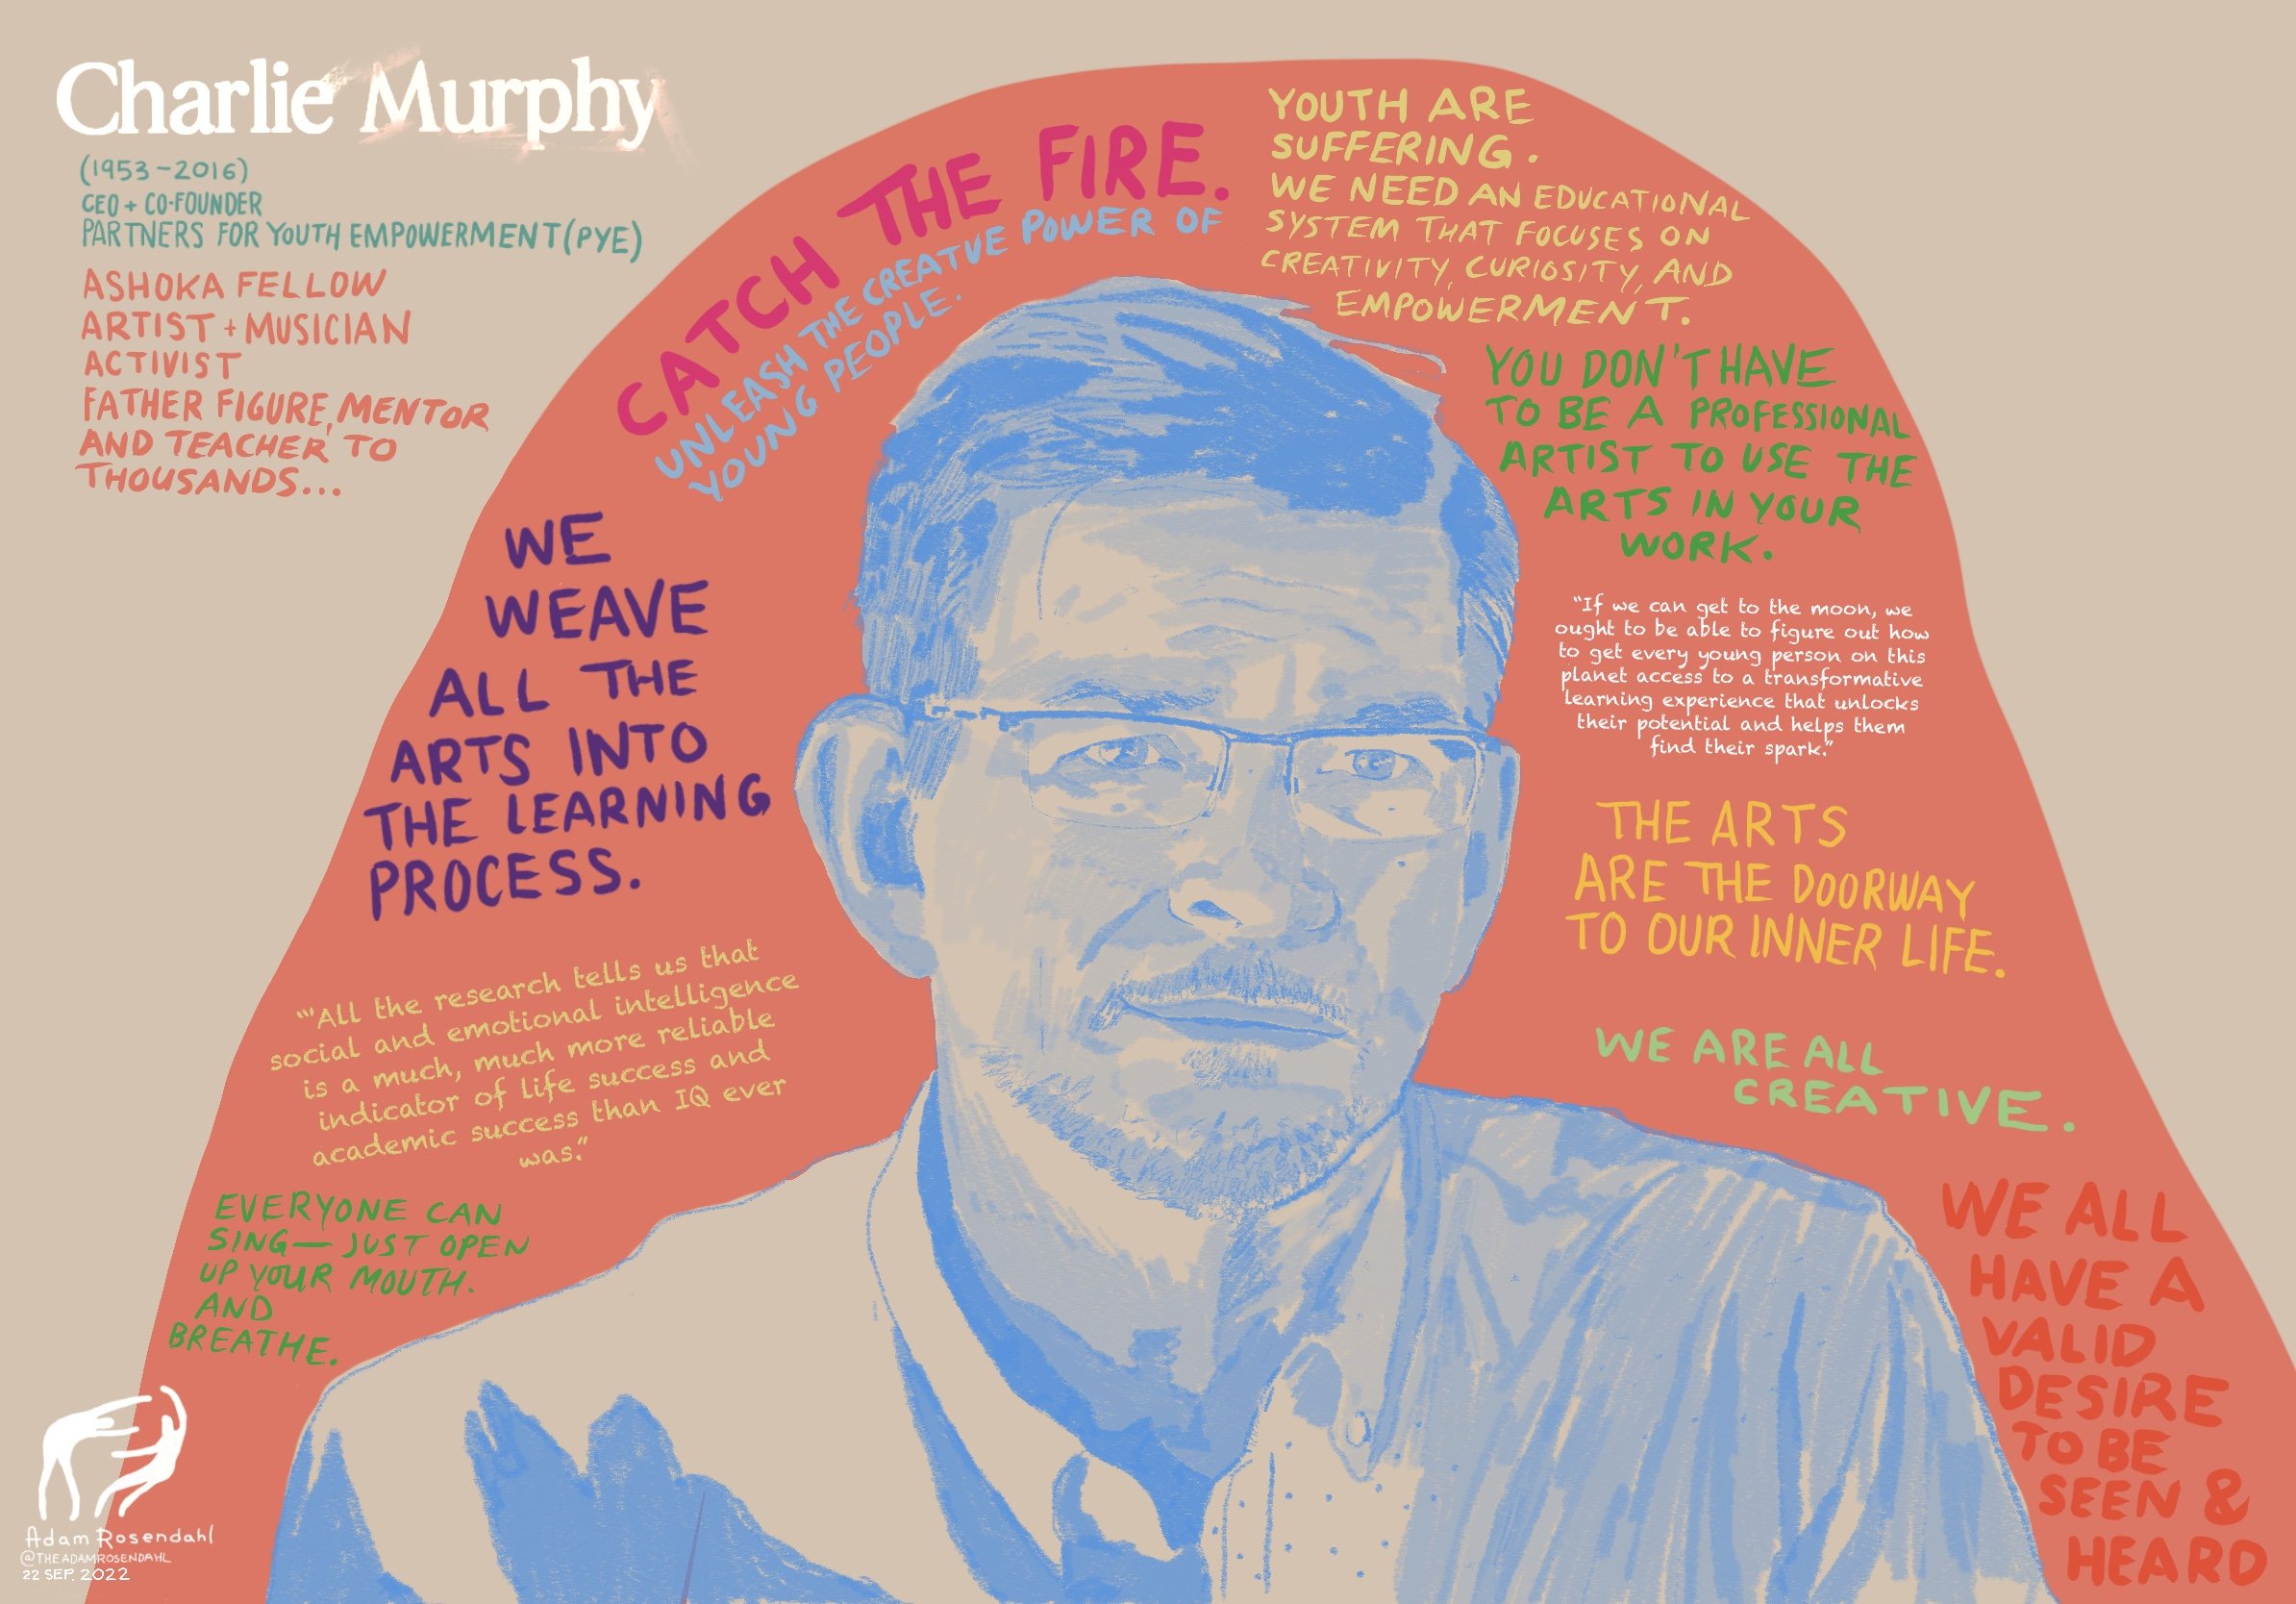 Charlie Murphy
(1953-2016)
CEO + CO-FOUNDER
PARTNERS FOR YOUTH EMPOWERMENT (PYE)
ASHOKA FELLOW
ARTIST + MUSICIAN
ACTIVIST
FATHER FIGURE, MENTOR
AND TEACHER TO
THOUSANDS...
CATCH THE FIRE.
UNLEASH THE CREATVE POWER OF
YOUNG PEOPLE.
YOUTH ARE
SUFFERING.
WE NEED AN EDUCATIONAL
SYSTEM THAT FOCUSES ON
CREATIVITY, CURIOSITY, AND
EMPOWERMENT.
YOU DON'T HAVE
TO BE A PROFESSIONAL
ARTIST TO USE THE
ARTS IN YOUR
WORK.
WE
WEAVE
ALL THE
ARTS INTO
THE LEARNING
PROCESS.
"If we can get to the moon, we
ought to be able to figure out how
to get every young person on this
planet access to a transformative
learning experience that unlocks
their potential and helps them
find their spark."
THE ARTS
ARE THE DOORWAY
TO OUR INNER LIFE.
"'All the research tells us that
social and emotional intelligence
is a much, much more reliable
indicator of life success and
academic success than IQ ever
was."
WE ARE ALL
CREATIVE.
EVERYONE CAN
SING—JUST OPEN
UP YOUR MOUTH.
AND
BREATHE.
WE ALL
HAVE A
VALID
DESIRE
TO BE
SEEN &
HEARD
Adam Rosendahl
@THEADAMROSENDAHL
22 SEP. 2022